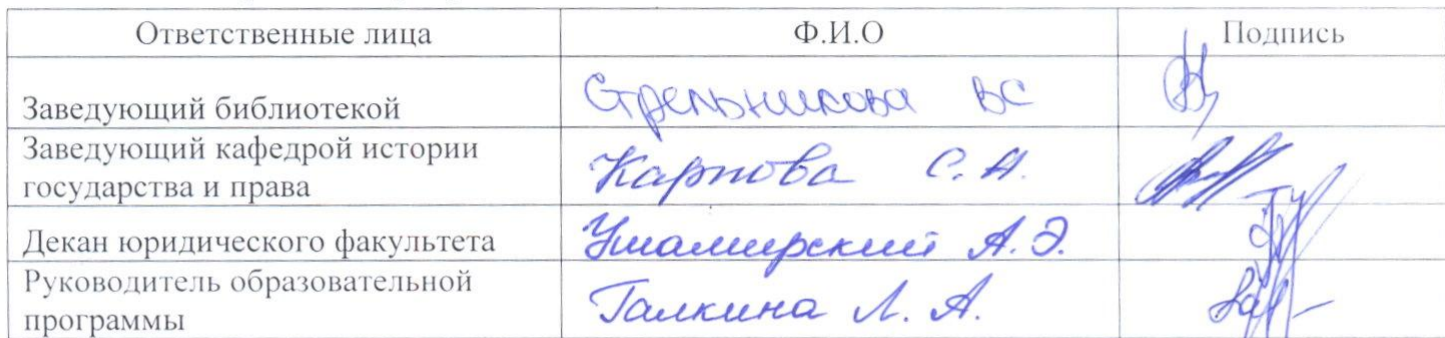 Ответственные лица Ф.И.О Подпись
Заведующий библиотекой Стрельникова ВС
Заведующий кафедрой истории
государства и права Карпова С.А.
Декан юридического факультета Ушамирский А.Э.
Руководитель образовательной
программы Галкина Л. А.